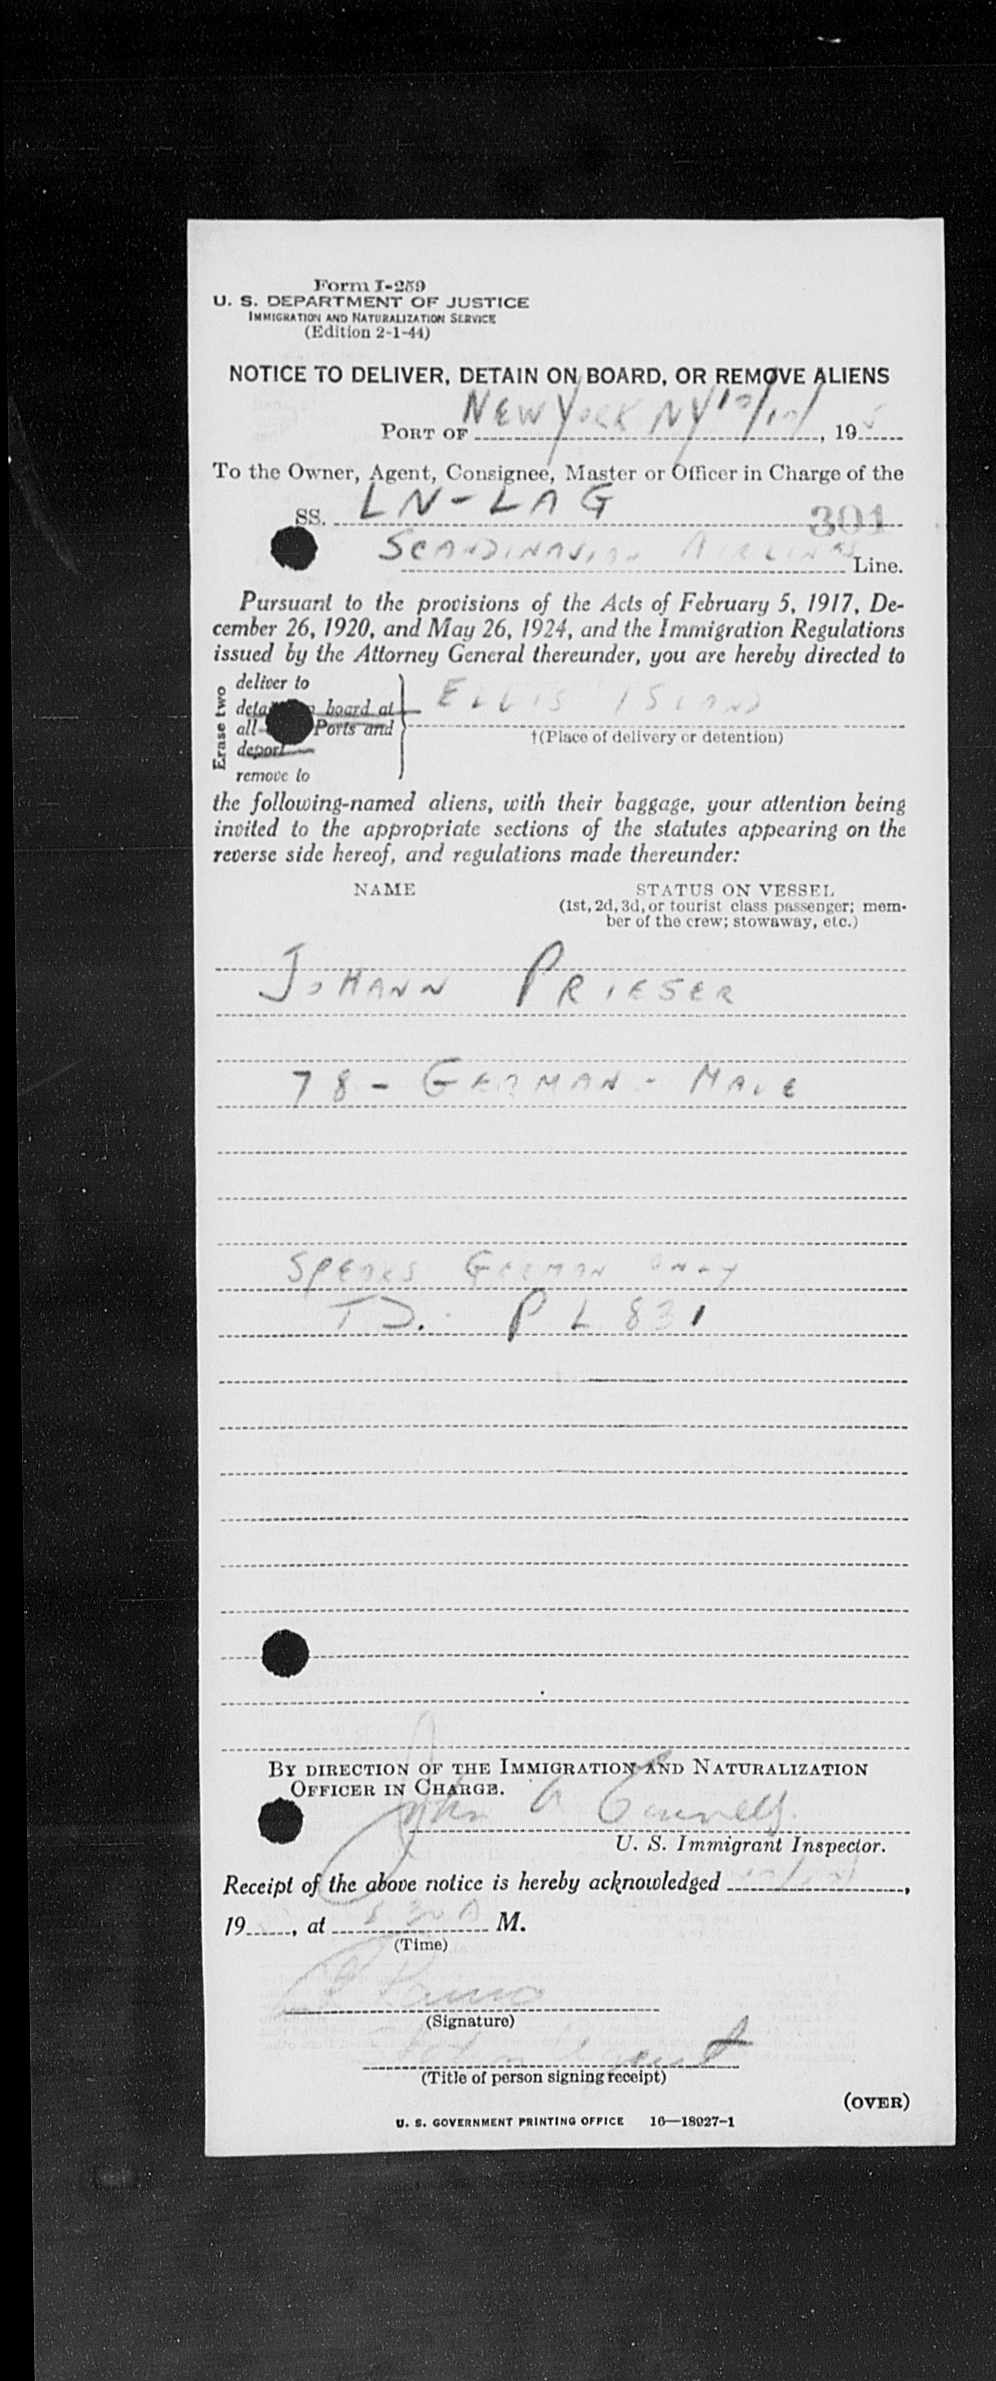 Form I-259
U. S. DEPARTMENT OF JUSTICE
IMMIGRATION AND NATURALIZATION SERVICE
(Edition 2-1-44)
NOTICE TO DELIVER, DETAIN ON BOARD, OR REMOVE ALIENS
PORT OF NEW YORK NY 10/10/, 195
To the Owner, Agent, Consignee, Master or Officer in Charge of the
SS. LN-LAG
301
SCANDINAVIAN AIRLINES Line.
Pursuant to the provisions of the Acts of February 5, 1917, De-
cember 26, 1920, and May 26, 1924, and the Immigration Regulations
issued by the Attorney General thereunder, you are hereby directed to
Erase two
deliver to
board at
all Ports and
deport
remove to
ELLIS ISLAND
†(Place of delivery or detention)
the following-named aliens, with their baggage, your attention being
invited to the appropriate sections of the statutes appearing on the
reverse side hereof, and regulations made thereunder:
NAME STATUS ON VESSEL
(1st, 2d, 3d, or tourist class passenger; mem-
ber of the crew; stowaway, etc.)
JOHANN PRIESER
78 - GERMAN - MALE
SPEAKS GERMAN ONLY
T.D. PL 831
BY DIRECTION OF THE IMMIGRATION AND NATURALIZATION
OFFICER IN CHARGE.
John A Connelly
U. S. Immigrant Inspector.
Receipt of the above notice is hereby acknowledged ,
19 , at 8 30 A M.
(Time)
(Signature)
agent
(Title of person signing receipt)
(OVER)
U. S. GOVERNMENT PRINTING OFFICE 16—18927-1